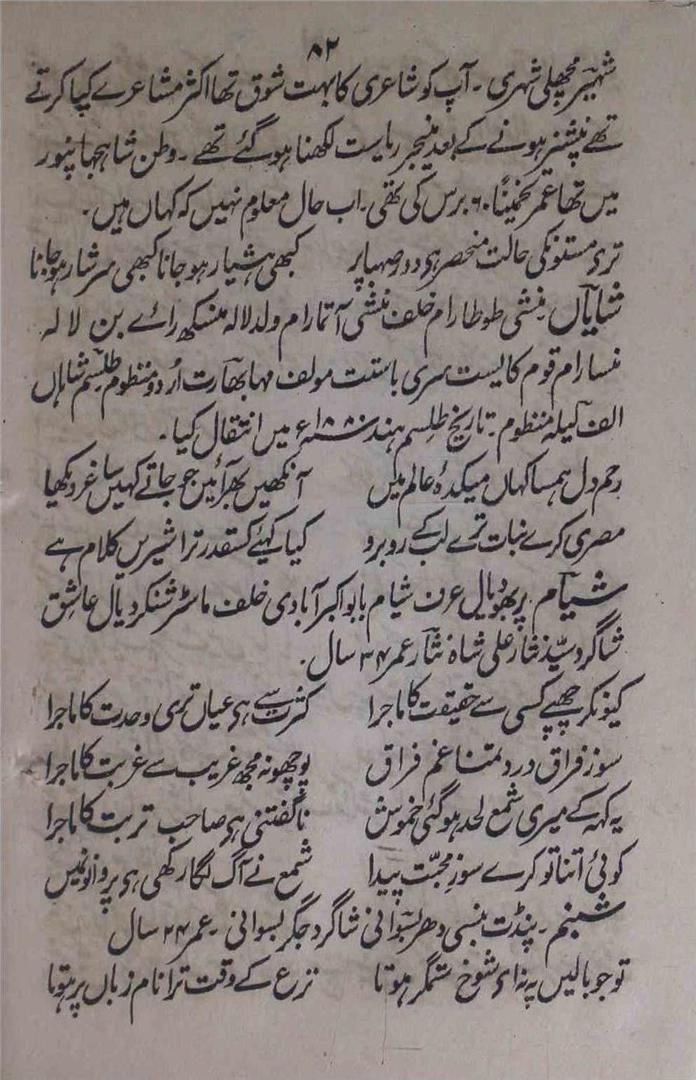 ۸۲
شہیر مچھلی شہری ۔ آپ کو شاعری کا بہت شوق تھا اکثر مشاعرے کیا کرتے
تھے پنشنر ہونے کے بعد منیجر ریاست لکھنا ہو گئے تھے ۔ وطن شاہجہانپور
میں تھا عمر تخمیناً ۶۰ برس کی تھی ۔ اب حال معلوم نہیں کہ کہاں ہیں ۔
تری مستونکی حالت منحصر ہی دور صہبا پر کبھی ہشیار ہو جانا کبھی سرشار ہو جانا
شایاں منشی طوطا رام خلف منشی آتما رام ولد لالہ منسکھ رائے بن لالہ
منسا رام قوم کایست سری باستت مولف مہا بھارت اردو منظوم طلسم شاہاں
الف لیلہ منظوم ۔ تاریخ طلسم ہند ۱۸۸۰ء میں انتقال کیا ۔
رحم دل ہمسا کہاں میکدۂ عالم میں آنکھیں بھر آئیں جو جاتے کہیں ساغر دیکھا
مصری کرے نبات ترے لب کے روبرو کیا کہیئے کسقدر ترا شیریں کلام ہے
شیام پربھو دیال عرف شیام بابو اکبرآبادی خلف ماسٹر شنکر دیال عاشق
شاگرد سید نثار علی شاہ نثار عمر ۳۴ سال ۔
کیونکر چھپے کسی سے حقیقت کا ماجرا کثرت سے ہی عیاں تری وحدت کا ماجرا
سوز فراق درد تمنا غم فراق پوچھو نہ مجھ غریب سے غربت کا ماجرا
یہ کہہ کے میری شمع لحد ہو گئی خموش ناگفتنی ہی صاحب تربت کا ماجرا
کوئی اتنا تو کرے سوز محبت پیدا شمع نے آگ لگا رکھی ہی پروانونمیں
شبنم ۔ پنڈت بنسی دھر بسوانی شاگرد جگر بسوانی ۔ عمر ۲۴ سال
تو جو بالیں پہ نہ ای شوخ ستمگر ہوتا نزع کے وقت ترا نام زباں پر ہوتا